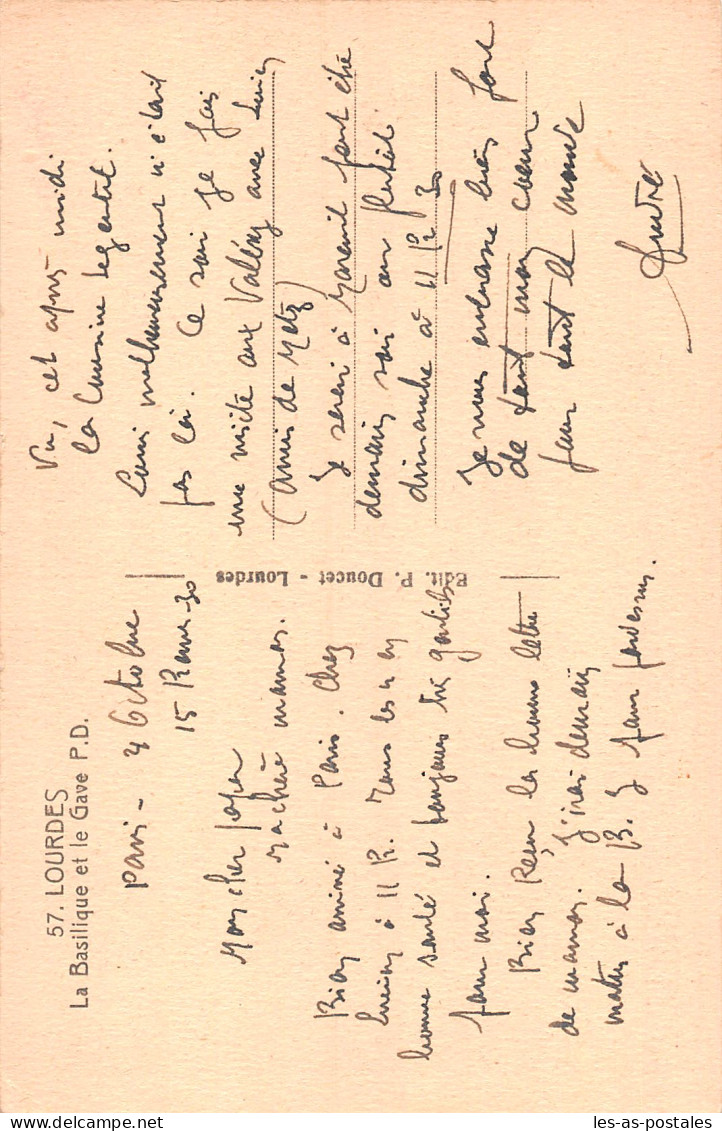 57. LOURDES
La Basilique et le Gave P.D.
Paris - 4 Octobre
15 heures 30
Mon cher papa
Ma chère maman.
Bien arrivé à Paris. Chez
Lucien à 11 h. Tous les en
bonne santé et toujours très gentils
pour moi.
Bien Reçu la bonne lettre
de maman. J'irai demain
matin à la B. J pour pardessus.
Edit. P. Doucet - Lourdes
Vu, cet après midi
la Cousine Legentil.
Louis malheureusement n'était
pas là. Ce soir je fais
une visite aux Valéry avec Lucien
(amis de Metz)
Je serai à Mareuil peut être
demain soir ou plutôt
dimanche à 11 h 30
Je vous embrasse bien fort
de tout mon coeur
pour tout le monde
André
les-as-postales